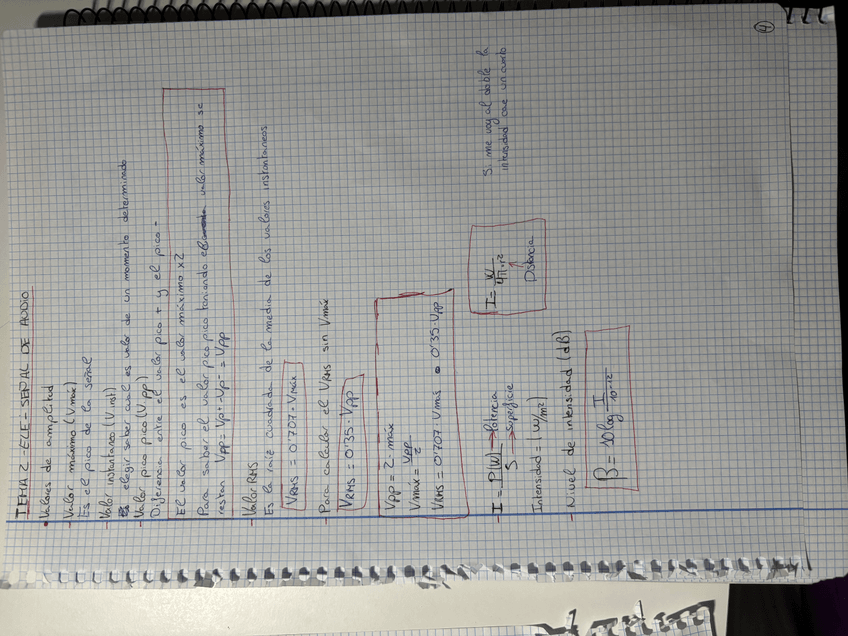 TEMA 2 - ELE - SEÑAL DE AUDIO
• Valores de amplitud
- Valor máximo (Vmax)
Es el pico de la señal
- Valor instantaneo (V inst)
Es elegir saber cual es valor de un momento determinado
- Valor pico pico (V pp)
Diferencia entre el valor pico + y el pico -
El valor pico es el valor máximo x2
Para saber el valor pico pico teniendo el valor máximo se
restan Vpp - Vp+ - Vp- = Vpp
- Valor RMS
Es la raiz cuadrada de la media de los valores instantaneos
VRMS = 0'707 · Vmáx
- Para calcular el VRMS sin Vmáx
VRMS = 0'35 · Vpp
Vpp = 2 · máx
Vmáx = Vpp/2
VRMS = 0'707 · Vmás = 0'35 · Vpp
- I = P(W)/S → Potencia → Superficie
I = W/4π·r² ↑ Distancia
Si me voy al doble la
intensidad cae un cuarto
Intensidad = (W/m²)
- Nivel de intensidad (dB)
β = 10 log I/10⁻¹²
4